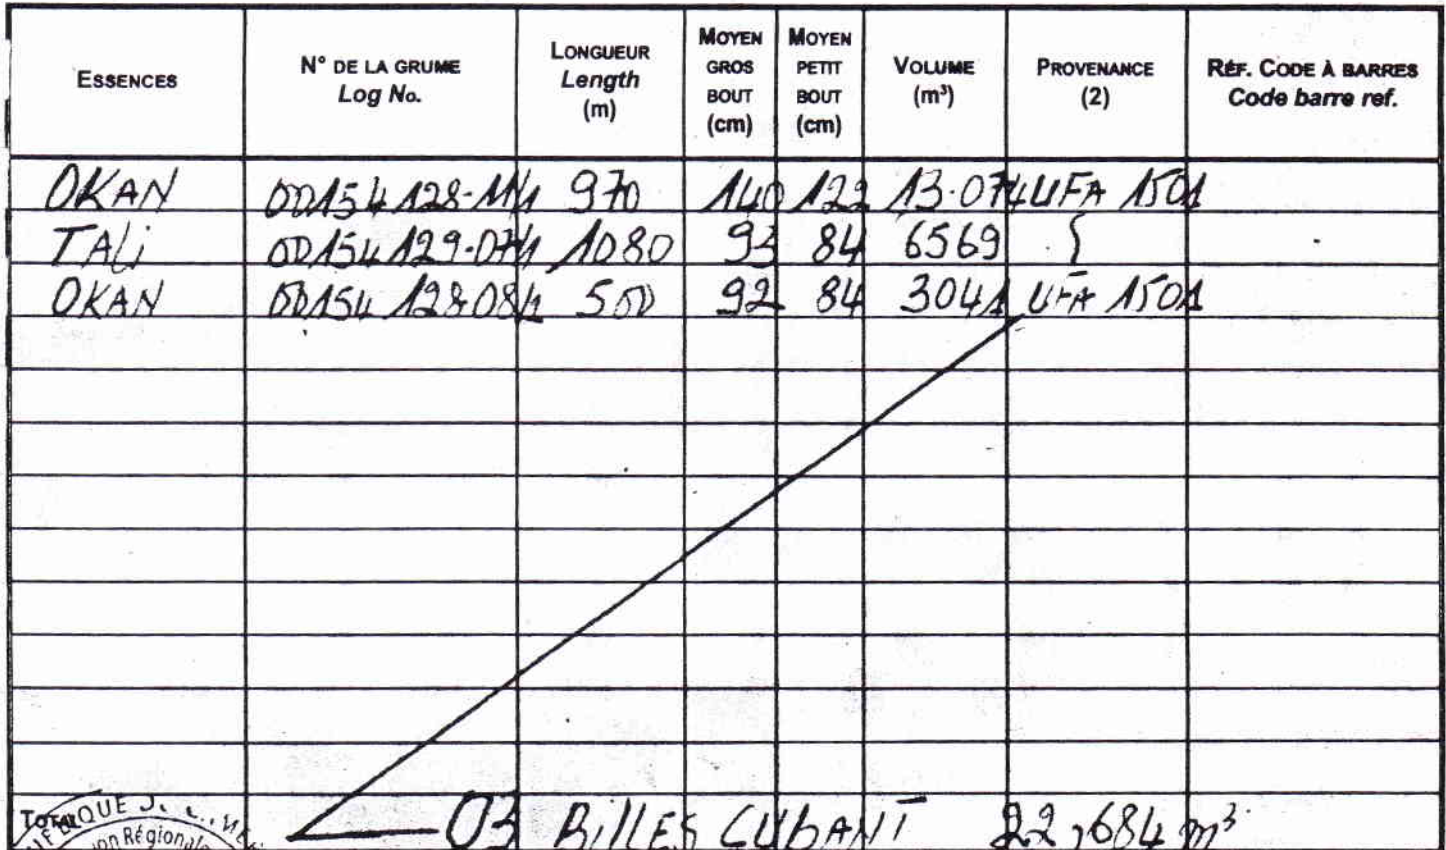 ESSENCES N° DE LA GRUME Log No. LONGUEUR Length (m) MOYEN GROS BOUT (cm) MOYEN PETIT BOUT (cm) VOLUME (m³) PROVENANCE (2) RÉF. CODE À BARRES Code barre ref.
OKAN 00154128-M/1 970 140 122 13.074 UFA 1501
TALi 00154129-07/1 1080 93 84 6569 {
OKAN 00154 128-08/1 500 92 84 3041 UFA 1501
TOTAL 03 BillES CUBANT 22,684 m³
IQUE
on Régionale